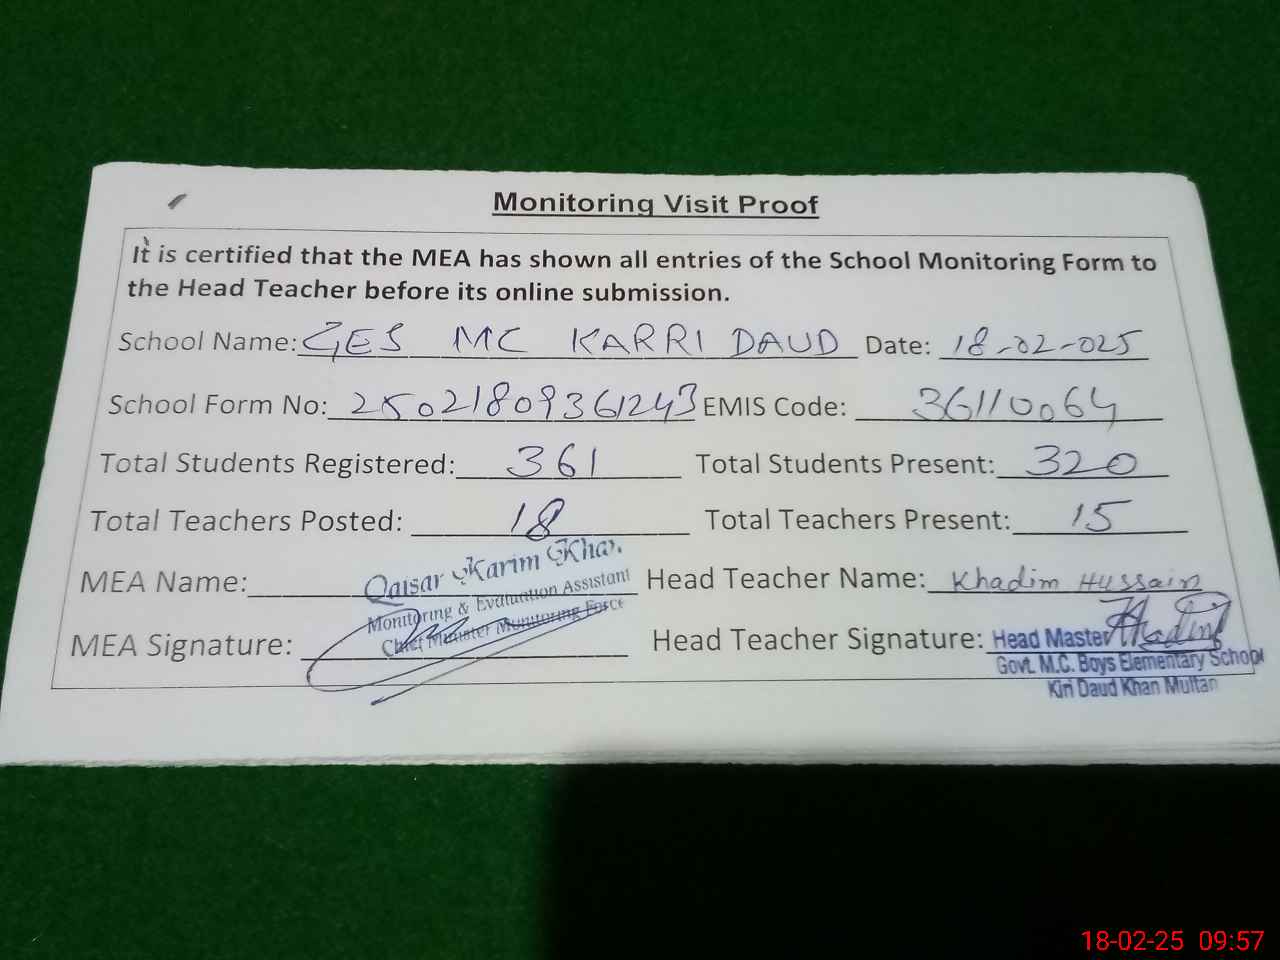 Monitoring Visit Proof
It is certified that the MEA has shown all entries of the School Monitoring Form to
the Head Teacher before its online submission.
School Name: GES MC KARRI DAUD Date: 18-02-025
School Form No: 25021809361243 EMIS Code: 36110064
Total Students Registered: 361 Total Students Present: 320
Total Teachers Posted: 18 Total Teachers Present: 15
MEA Name: Qaisar Karim Khan Head Teacher Name: Khadim Hussain
Monitoring & Evaluation Assistant
Chief Minister Monitoring Force
MEA Signature: Head Teacher Signature: Khadim
Head Master
Govt. M.C. Boys Elementary School
Kiri Daud Khan Multan
18-02-25 09:57